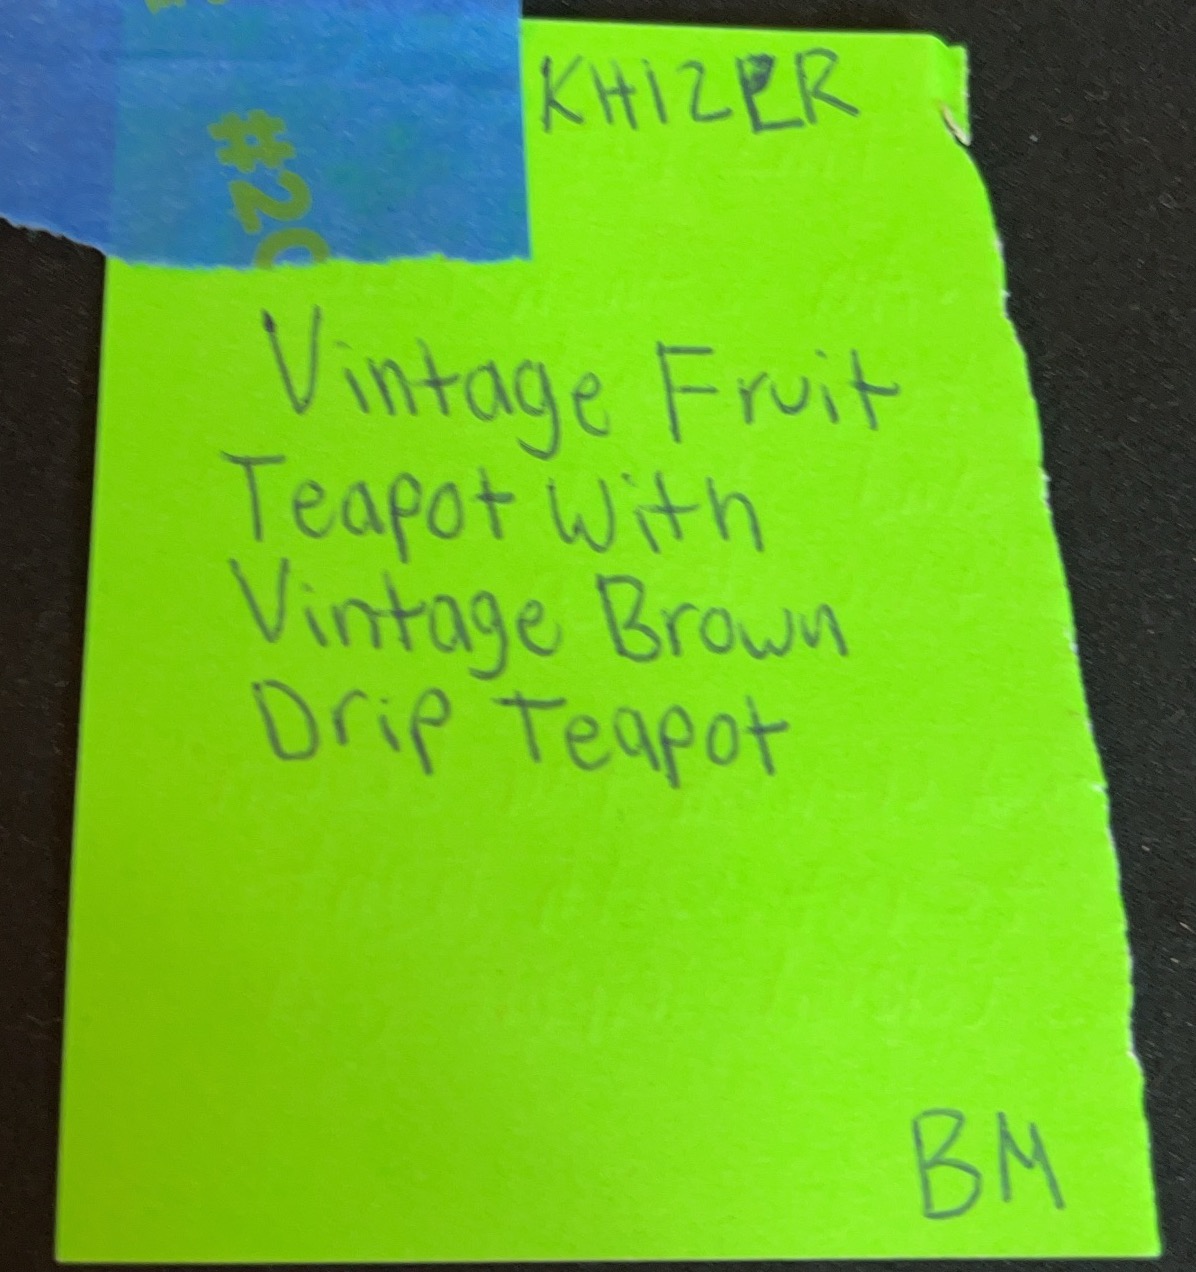 KHIZER
#20
Vintage Fruit
Teapot With
Vintage Brown
Drip Teapot
BM